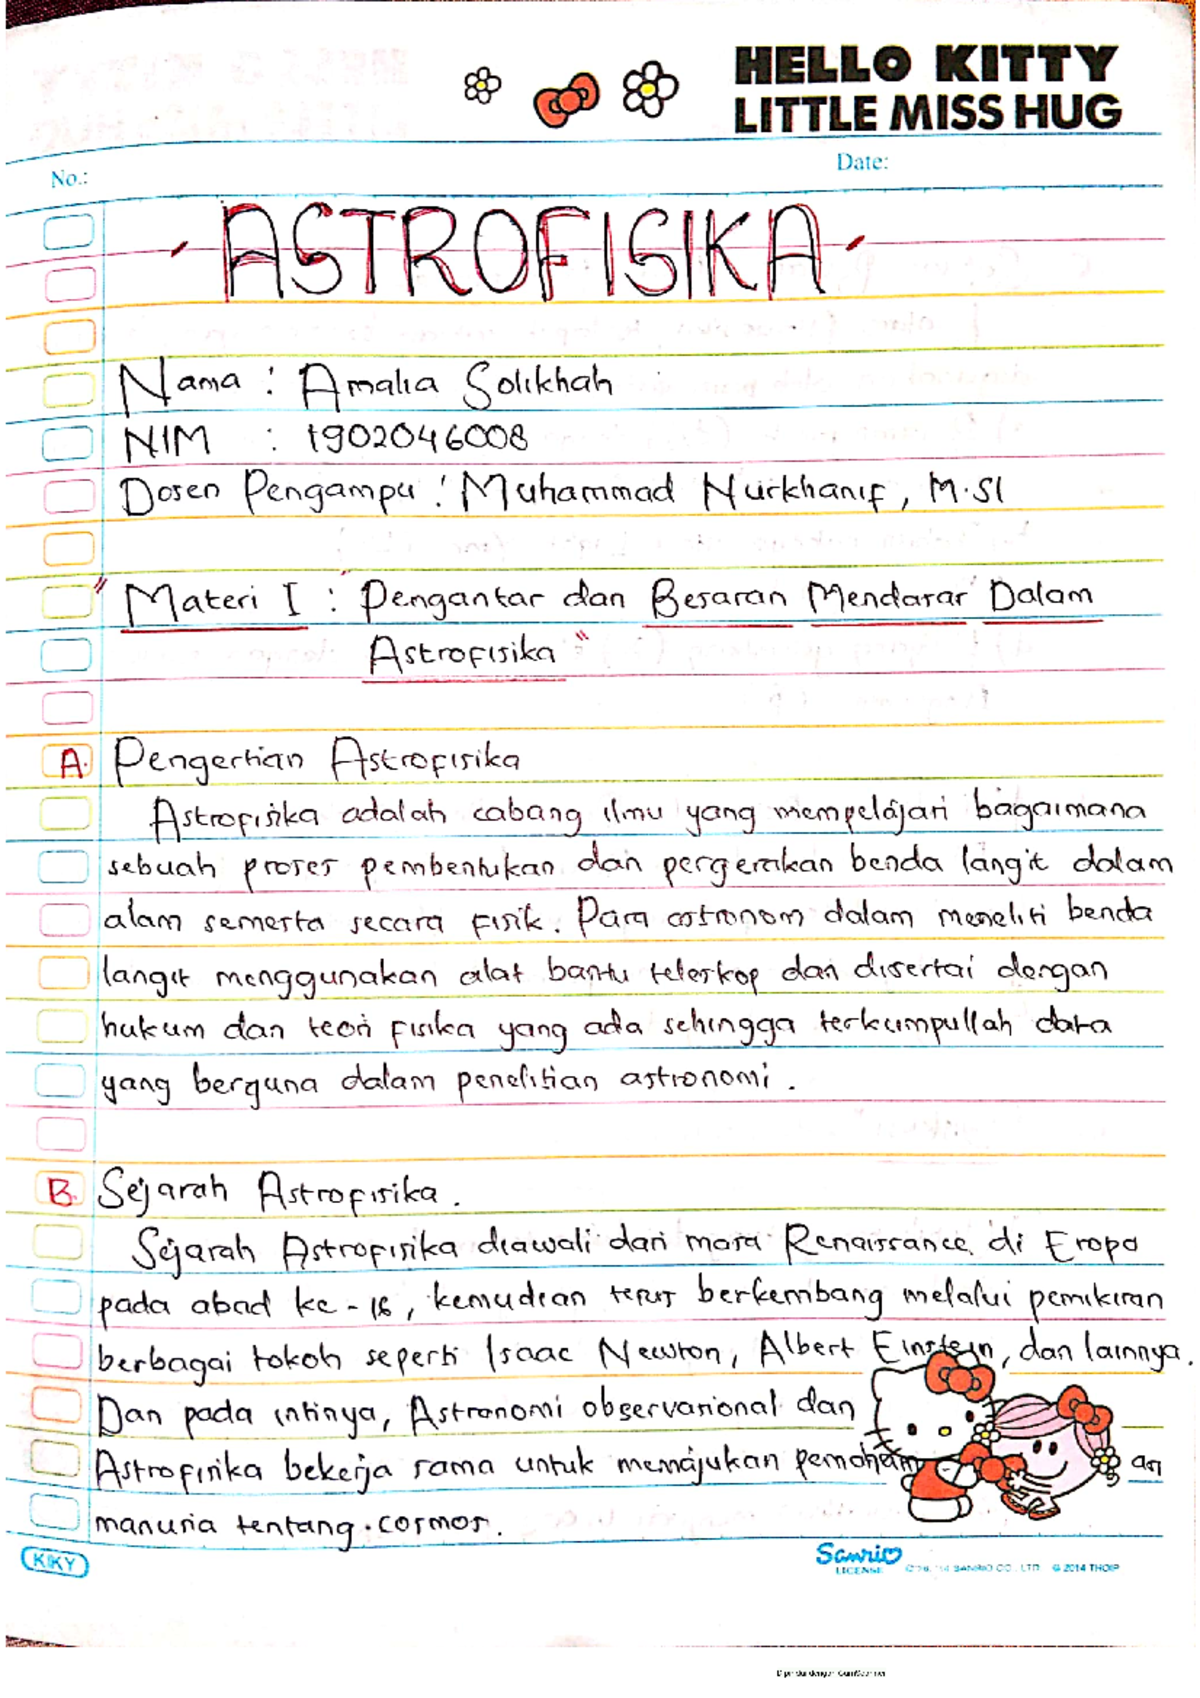 HELLO KITTY
LITTLE MISS HUG
No.:
Date:
- ASTROFISIKA -
Nama : Amalia Solikhah
NIM : 1902046008
Dosen Pengampu : Muhammad Nurkhanif, M.SI
"Materi I : Pengantar dan Besaran Mendasar Dalam
Astrofisika"
A. Pengertian Astrofisika
Astrofisika adalah cabang ilmu yang mempelajari bagaimana
sebuah proses pembentukan dan pergerakan benda langit dalam
alam semesta secara fisik. Para astronom dalam meneliti benda
langit menggunakan alat bantu teleskop dan disertai dengan
hukum dan teori fisika yang ada sehingga terkumpullah data
yang berguna dalam penelitian astronomi.
B. Sejarah Astrofisika.
Sejarah Astrofisika diawali dari masa Renaissance di Eropa
pada abad ke-16, kemudian terus berkembang melalui pemikiran
berbagai tokoh seperti Isaac Newton, Albert Einstein, dan lainnya.
Dan pada intinya, Astronomi observasional dan
Astrofisika bekerja sama untuk memajukan pemaham an
manusia tentang cosmos.
KIKY
Sanrio
LICENSE SANRIO CO., LTD. © 2014 THOIP